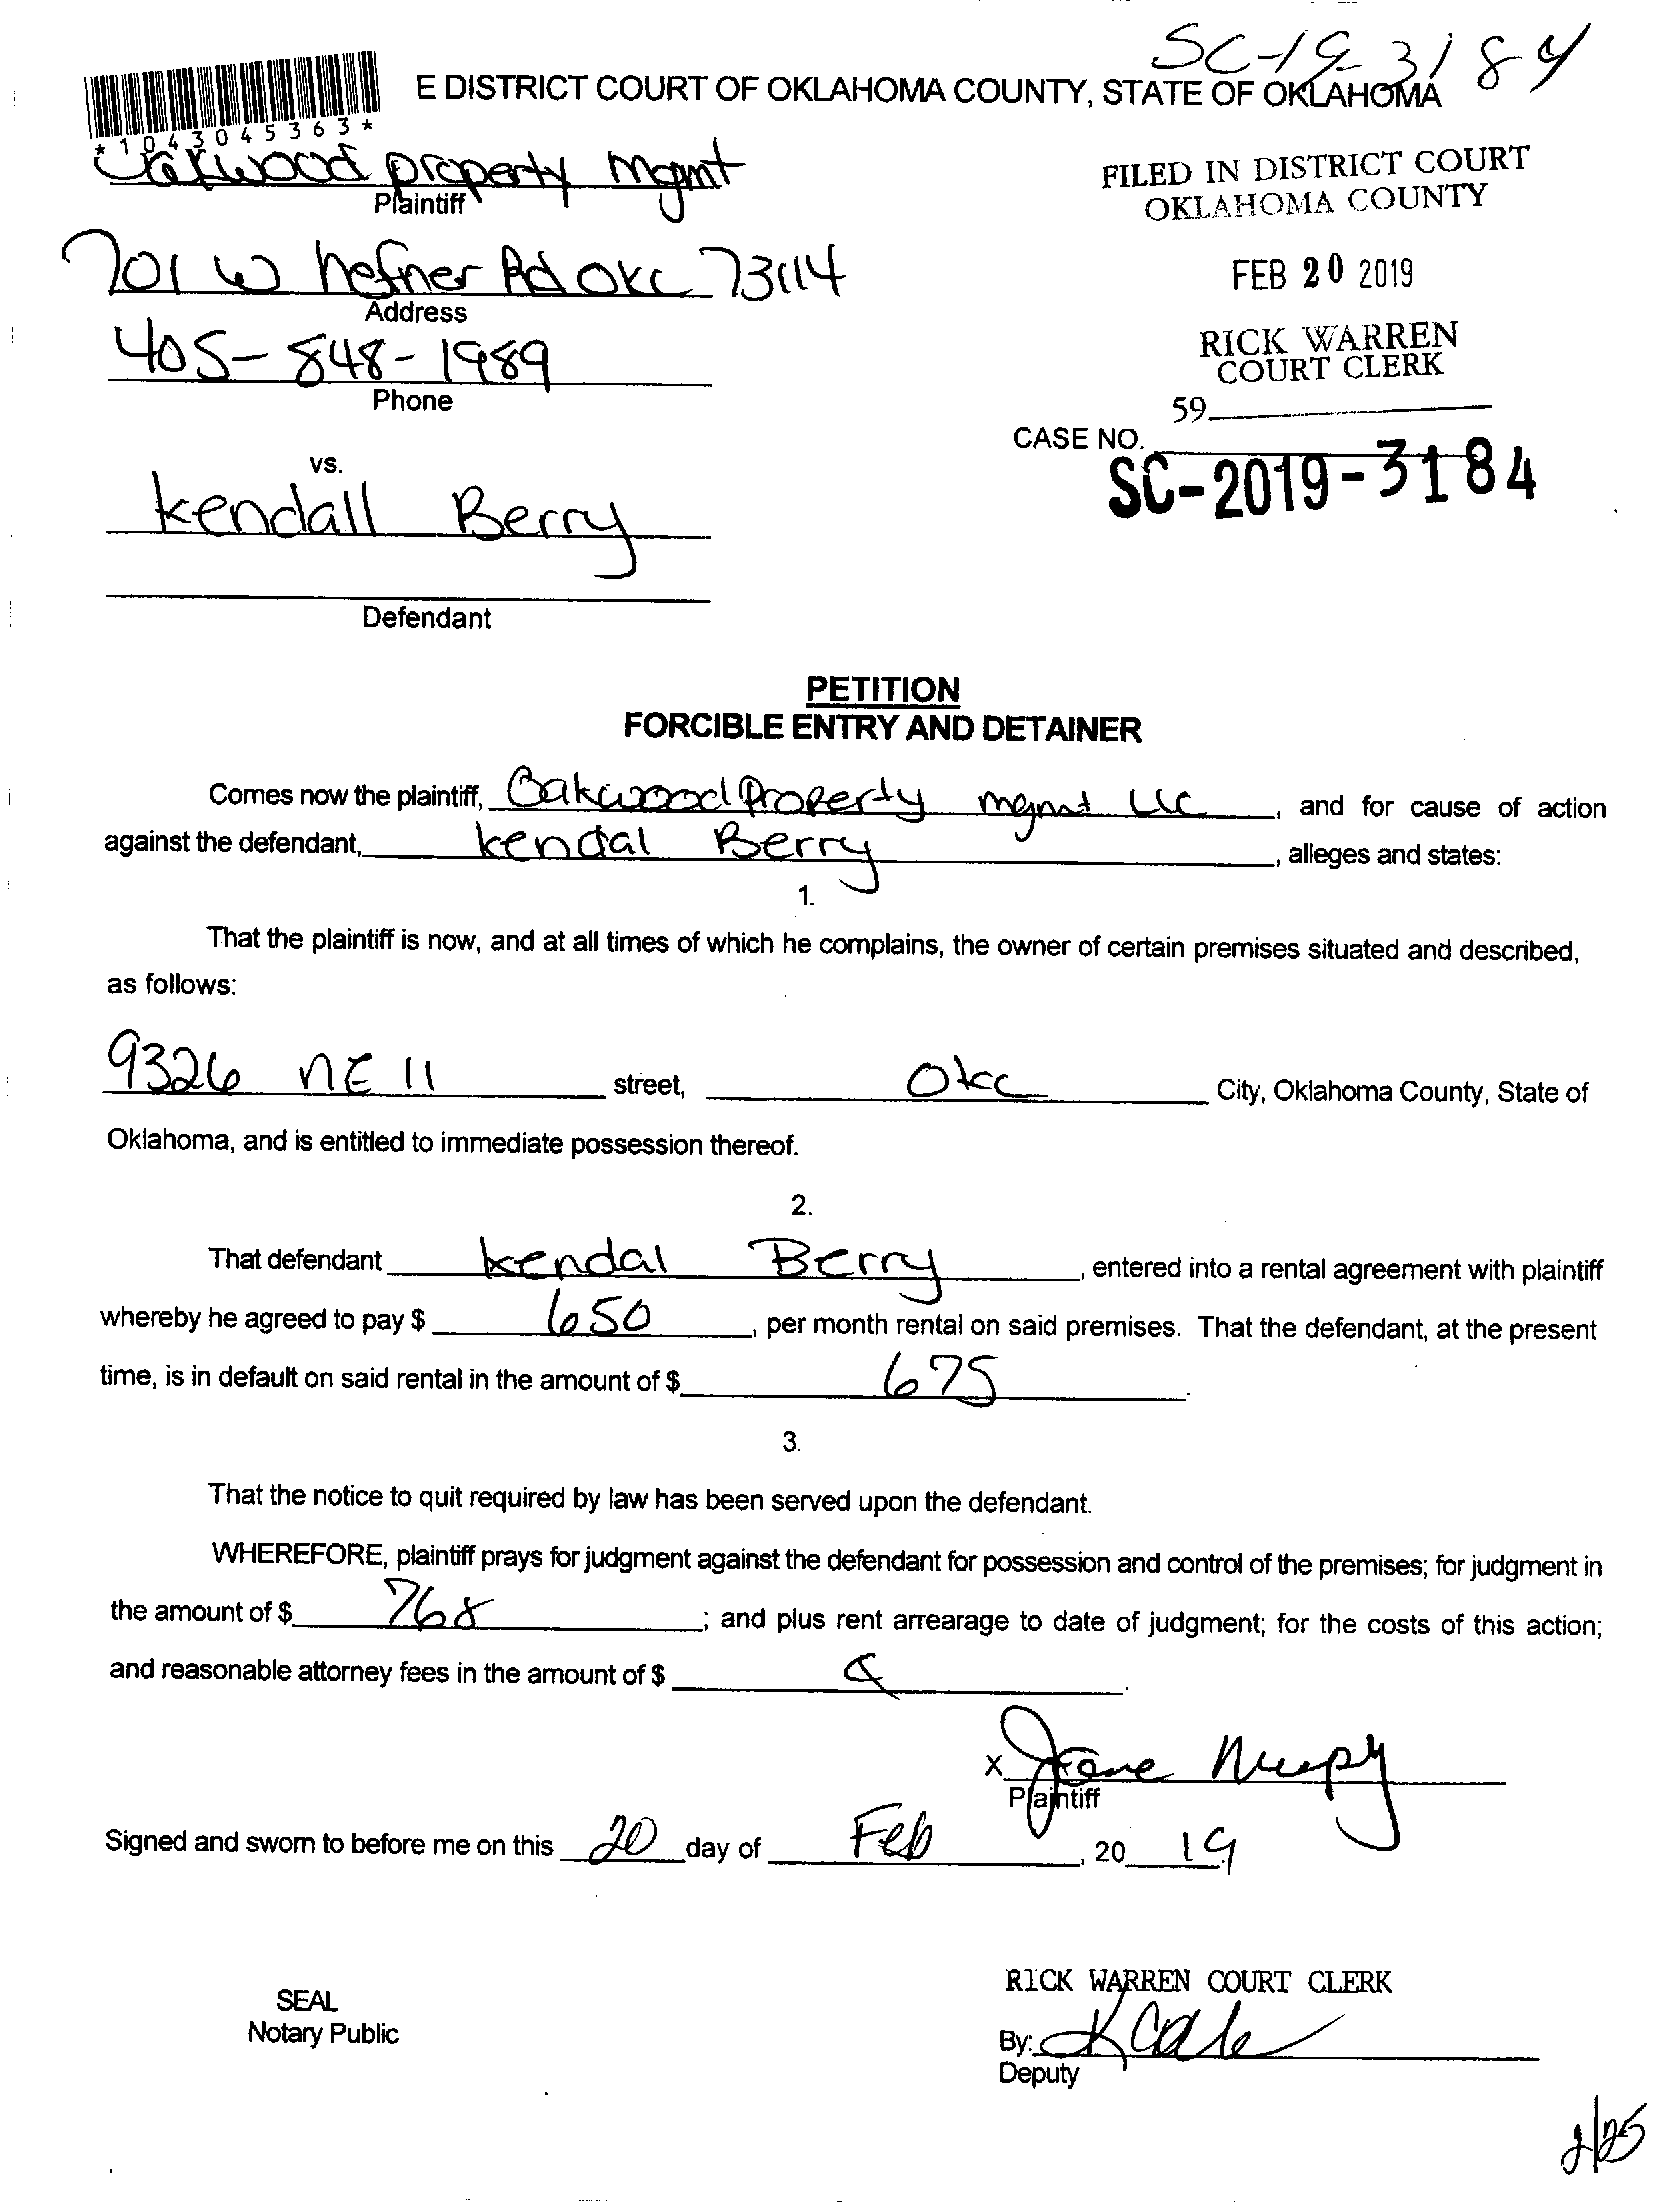 SC-19-3184
E DISTRICT COURT OF OKLAHOMA COUNTY, STATE OF OKLAHOMA
*1043045363*
Oakwood property mgmt
Plaintiff
FILED IN DISTRICT COURT
OKLAHOMA COUNTY
701 W hefner Rd OKC 73114
Address
FEB 20 2019
405-848-1989
Phone
RICK WARREN
COURT CLERK
59
CASE NO.
SC-2019-3184
vs.
Kendall Berry
Defendant
PETITION
FORCIBLE ENTRY AND DETAINER
Comes now the plaintiff, Oakwood Property mgmt LLC, and for cause of action
against the defendant, Kendal Berry, alleges and states:
1.
That the plaintiff is now, and at all times of which he complains, the owner of certain premises situated and described,
as follows:
9326 NE 11 street, OKC City, Oklahoma County, State of
Oklahoma, and is entitled to immediate possession thereof.
2.
That defendant Kendal Berry, entered into a rental agreement with plaintiff
whereby he agreed to pay $ 650, per month rental on said premises. That the defendant, at the present
time, is in default on said rental in the amount of $ 675.
3.
That the notice to quit required by law has been served upon the defendant.
WHEREFORE, plaintiff prays for judgment against the defendant for possession and control of the premises; for judgment in
the amount of $ 768; and plus rent arrearage to date of judgment; for the costs of this action;
and reasonable attorney fees in the amount of $ .
X
Plaintiff
Signed and sworn to before me on this 20 day of Feb, 20 19
RICK WARREN COURT CLERK
SEAL
Notary Public
By:
Deputy
2/25